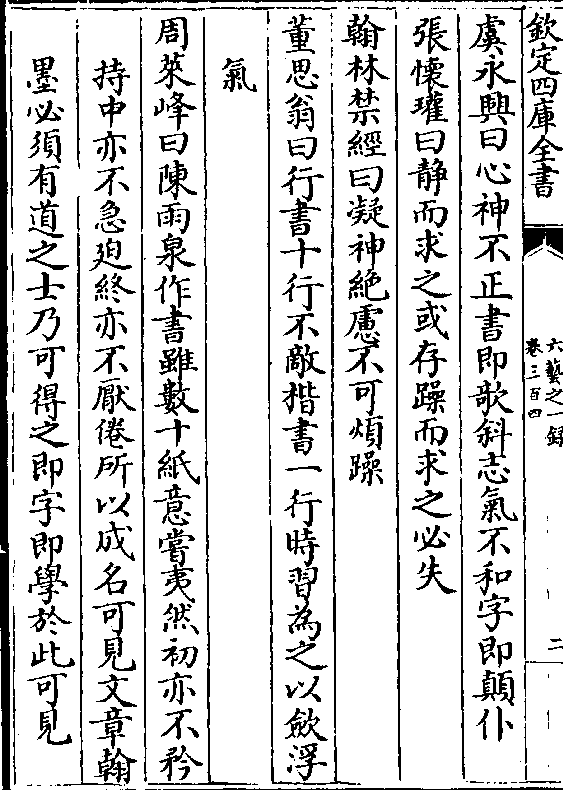 欽定四庫全書
六藝之一録
卷三百四
二
虞永興曰心神不正書即欹斜志氣不和字即顛仆
張懷瓘曰静而求之或存躁而求之必失
翰林禁經曰凝神絶慮不可煩躁
董思翁曰行書十行不敵楷書一行時習為之以斂浮
氣
周萊峰曰陳雨泉作書雖數十紙意嘗夷然初亦不矜
持中亦不急迫終亦不厭倦所以成名可見文章翰
墨必須有道之士乃可得之即字即學於此可見